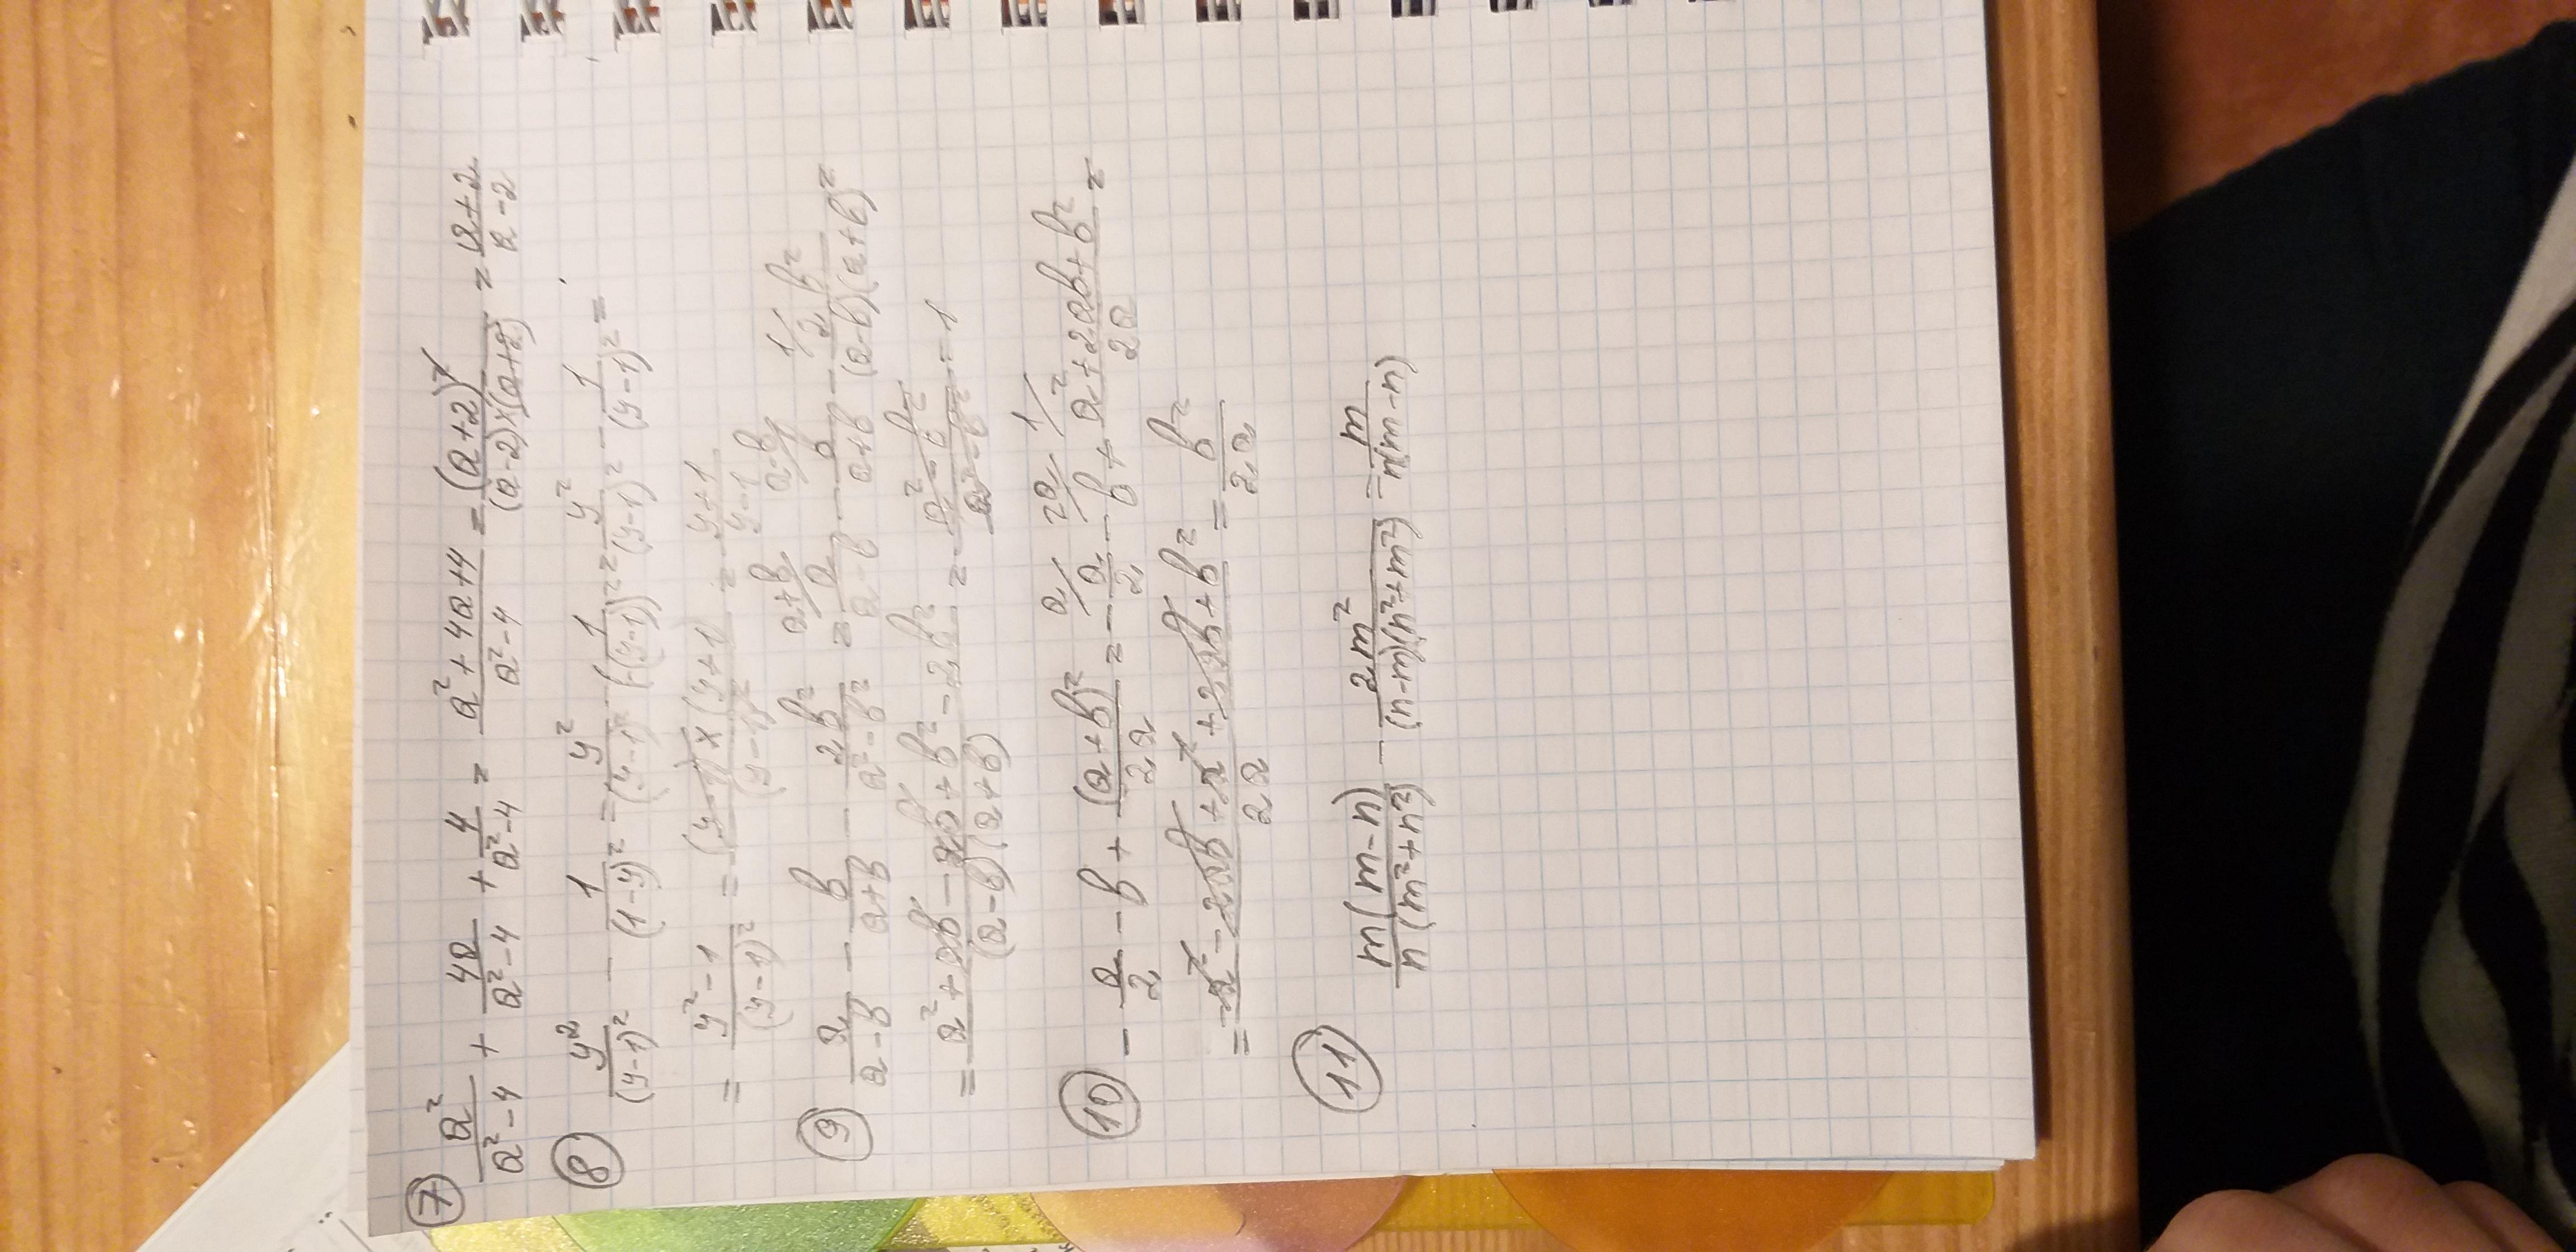 ⑦ a²/(a²-4) + 4a/(a²-4) + 4/(a²-4) = (a²+4a+4)/(a²-4) = (a+2)²/((a-2)×(a+2)) = (a+2)/(a-2)
⑧ y²/(y-1)² - 1/(1-y)² = y²/(y-1)² - 1/(-(y-1))² = y²/(y-1)² - 1/(y-1)² =
= (y²-1)/(y-1)² = (y-1)×(y+1)/(y-1)² = (y+1)/(y-1)
⑨ a/(a-b) - b/(a+b) - 2b²/(a²-b²) = a/(a-b) - b/(a+b) - 2b²/((a-b)(a+b)) =
= (a²+ab-ab+b²-2b²)/((a-b)(a+b)) = (a²-b²)/(a²-b²) = 1
⑩ -a/2 - b + (a+b)²/2a = -a/2 - b + (a²+2ab+b²)/2a =
= (-a²-2ab+a²+2ab+b²)/2a = b²/2a
⑪